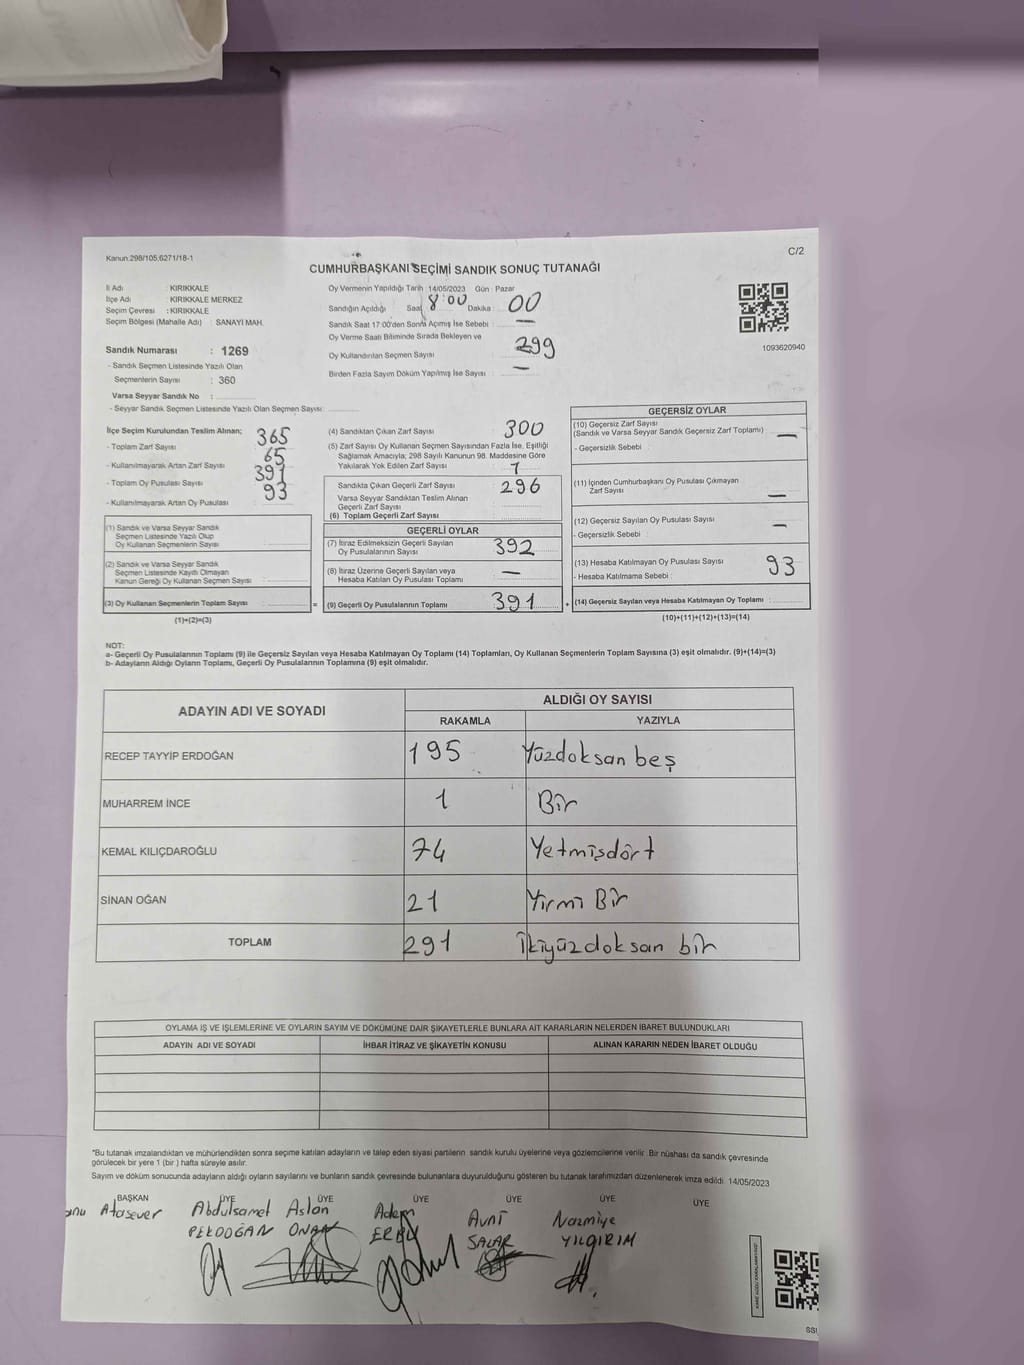 C/2
Kanun:298/105.6271/18-1
CUMHURBAŞKANI SEÇİMİ SANDIK SONUÇ TUTANAĞI
İl Adı : KIRIKKALE
İlçe Adı : KIRIKKALE MERKEZ
Seçim Çevresi : KIRIKKALE
Seçim Bölgesi (Mahalle Adı) : SANAYİ MAH.
Sandık Numarası : 1269
- Sandık Seçmen Listesinde Yazılı Olan
Seçmenlerin Sayısı : 360
Varsa Seyyar Sandık No :
- Seyyar Sandık Seçmen Listesinde Yazılı Olan Seçmen Sayısı:
Oy Vermenin Yapıldığı Tarih :14/05/2023 Gün : Pazar
Sandığın Açıldığı Saat 8:00 Dakika : 00
Sandık Saat 17:00'den Sonra Açımış İse Sebebi : —
Oy Verme Saati Bitiminde Sırada Bekleyen ve
Oy Kullandırılan Seçmen Sayısı 299
Birden Fazla Sayım Döküm Yapılmış İse Sayısı : —
1093620940
İlçe Seçim Kurulundan Teslim Alınan;
- Toplam Zarf Sayısı 365
- Kullanılmayarak Artan Zarf Sayısı 65
- Toplam Oy Pusulası Sayısı 391
- Kullanılmayarak Artan Oy Pusulası 93
(1) Sandık ve Varsa Seyyar Sandık
Seçmen Listesinde Yazılı Olup
Oy Kullanan Seçmenlerin Sayısı :
(2) Sandık ve Varsa Seyyar Sandık
Seçmen Listesinde Kayıtlı Olmayan
Kanun Gereği Oy Kullanan Seçmen Sayısı :
(3) Oy Kullanan Seçmenlerin Toplam Sayısı : =
(1)+(2)=(3)
(4) Sandıktan Çıkan Zarf Sayısı 300
(5) Zarf Sayısı Oy Kullanan Seçmen Sayısından Fazla İse, Eşitliği
Sağlamak Amacıyla; 298 Sayılı Kanunun 98. Maddesine Göre
Yakılarak Yok Edilen Zarf Sayısı 1
Sandıkta Çıkan Geçerli Zarf Sayısı 296
Varsa Seyyar Sandıktan Teslim Alınan
Geçerli Zarf Sayısı
(6) Toplam Geçerli Zarf Sayısı
GEÇERLİ OYLAR
(7) İtiraz Edilmeksizin Geçerli Sayılan
Oy Pusulalarının Sayısı 392
(8) İtiraz Üzerine Geçerli Sayılan veya
Hesaba Katılan Oy Pusulası Toplamı —
(9) Geçerli Oy Pusulalarının Toplamı 391 +
GEÇERSİZ OYLAR
(10) Geçersiz Zarf Sayısı
(Sandık ve Varsa Seyyar Sandık Geçersiz Zarf Toplamı) : —
- Geçersizlik Sebebi :
(11) İçinden Cumhurbaşkanı Oy Pusulası Çıkmayan
Zarf Sayısı —
(12) Geçersiz Sayılan Oy Pusulası Sayısı —
- Geçersizlik Sebebi :
(13) Hesaba Katılmayan Oy Pusulası Sayısı 93
- Hesaba Katılmama Sebebi :
(14) Geçersiz Sayılan veya Hesaba Katılmayan Oy Toplamı :
(10)+(11)+(12)+(13)=(14)
NOT:
a- Geçerli Oy Pusulalarının Toplamı (9) ile Geçersiz Sayılan veya Hesaba Katılmayan Oy Toplamı (14) Toplamları, Oy Kullanan Seçmenlerin Toplam Sayısına (3) eşit olmalıdır. (9)+(14)=(3)
b- Adayların Aldığı Oyların Toplamı, Geçerli Oy Pusulalarının Toplamına (9) eşit olmalıdır.
ADAYIN ADI VE SOYADI
ALDIĞI OY SAYISI
RAKAMLA YAZIYLA
RECEP TAYYİP ERDOĞAN 195 Yüzdoksan beş
MUHARREM İNCE 1 Bir
KEMAL KILIÇDAROĞLU 74 Yetmişdört
SİNAN OĞAN 21 Yirmi Bir
TOPLAM 291 İkiyüzdoksan bir
OYLAMA İŞ VE İŞLEMLERİNE VE OYLARIN SAYIM VE DÖKÜMÜNE DAİR ŞİKAYETLERLE BUNLARA AİT KARARLARIN NELERDEN İBARET BULUNDUKLARI
ADAYIN ADI VE SOYADI İHBAR İTİRAZ VE ŞİKAYETİN KONUSU ALINAN KARARIN NEDEN İBARET OLDUĞU
*Bu tutanak imzalandıktan ve mühürlendikten sonra seçime katılan adayların ve talep eden siyasi partilerin sandık kurulu üyelerine veya gözlemcilerine verilir. Bir nüshası da sandık çevresinde
görülecek bir yere 1 (bir ) hafta süreyle asılır.
Sayım ve döküm sonucunda adayların aldığı oyların sayılarını ve bunların sandık çevresinde bulunanlara duyurulduğunu gösteren bu tutanak tarafımızdan düzenlenerek imza edildi. 14/05/2023
BAŞKAN ÜYE ÜYE ÜYE ÜYE ÜYE ÜYE
Atasever Abdulsamet Aslan Adem Avni Nazmiye
PEKDOĞAN ONAN SALAR YILDIRIM